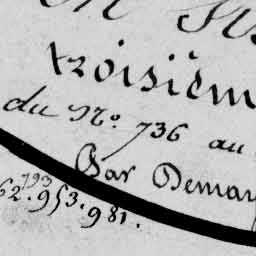 troisièm
du No. 736 au
Par Demay
793
62.953.981.